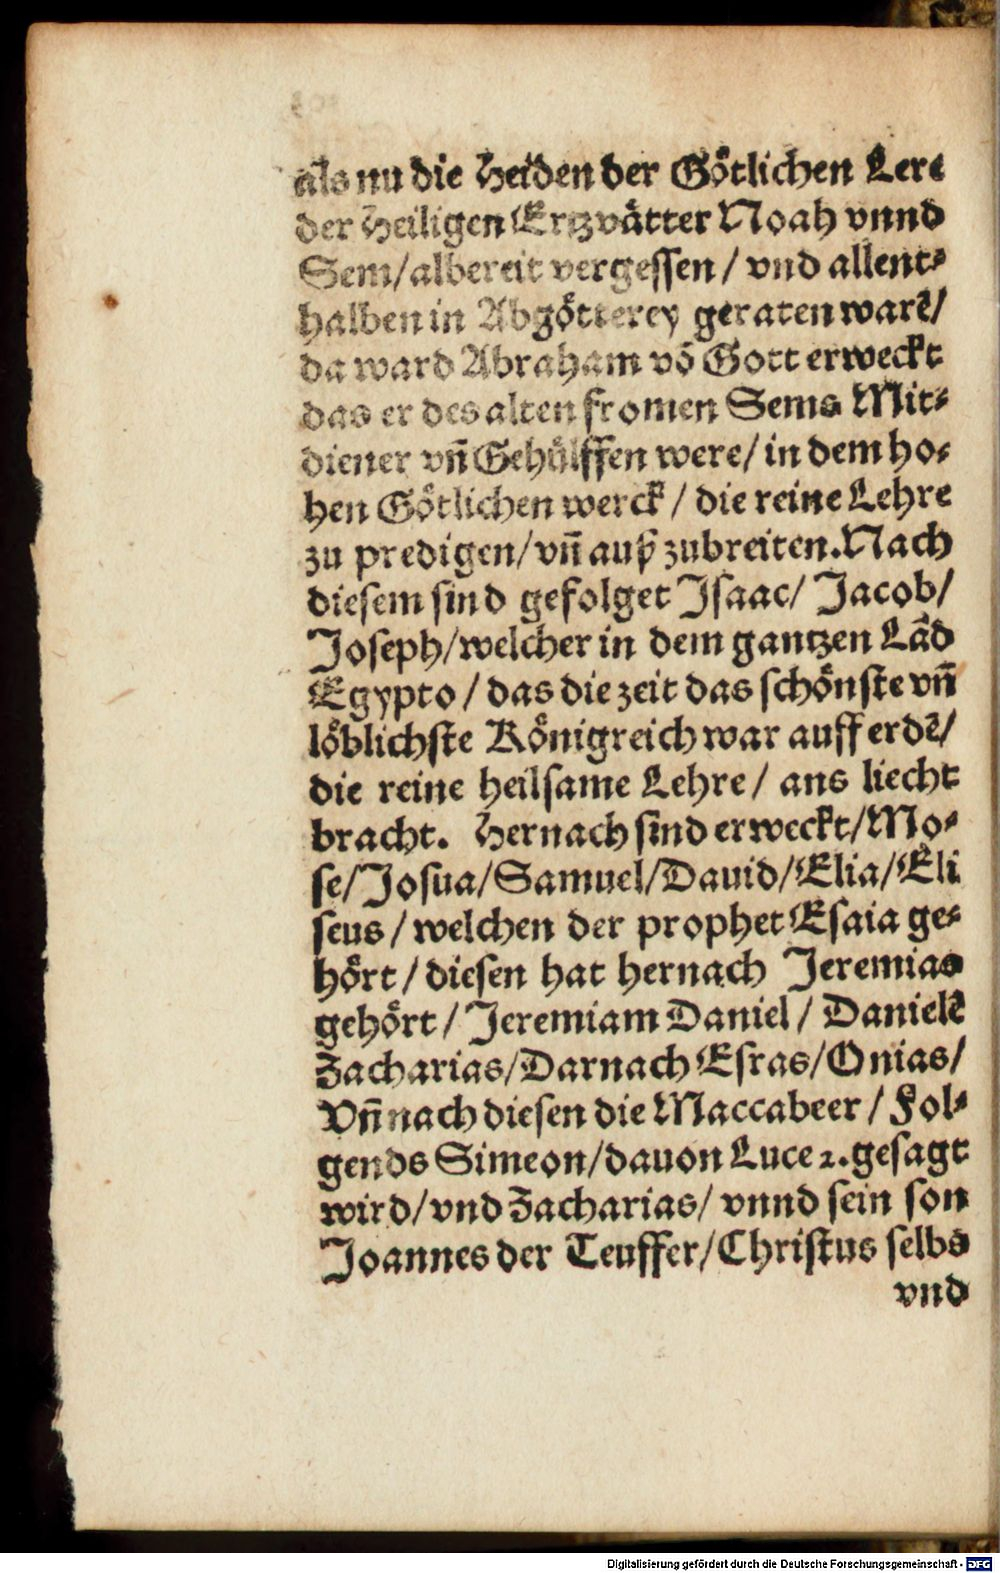 als nu die Heiden der Goͤtlichen Lere
der Heiligen Ertzvaͤtter Noah vnnd
Sem/albereit vergessen / vnd allent⸗
halben in Abgoͤtterey geraten warē/
da ward Abraham vō Gott erweckt
das er des alten fromen Sems Mit⸗
diener vn̄ Gehuͤlffen were/ in dem ho⸗
hen Goͤtlichen werck / die reine Lehre
zu predigen/vn̄ auß zubreiten. Nach
diesem sind gefolget Isaac/ Jacob/
Joseph/welcher in dem gantzen Lād
Egypto / das die zeit das schoͤnste vn̄
loͤblichste Koͤnigreich war auff erdē/
die reine heilsame Lehre/ ans liecht
bracht. Hernach sind erweckt/Mo⸗
se/Josua/Samuel/Dauid/Elia/Eli
seus / welchen der prophet Esaia ge⸗
hoͤrt / diesen hat hernach Jeremias
gehoͤrt / Jeremiam Daniel / Danielē
Zacharias/Darnach Esras/Onias/
Vn̄ nach diesen die Maccabeer / Fol⸗
gends Simeon/dauon Luce 2. gesagt
wird/vnd Zacharias/ vnnd sein son
Joannes der Teuffer/Christus selbs
vnd
Digitalisierung gefördert durch die Deutsche Forschungsgemeinschaft - DFG